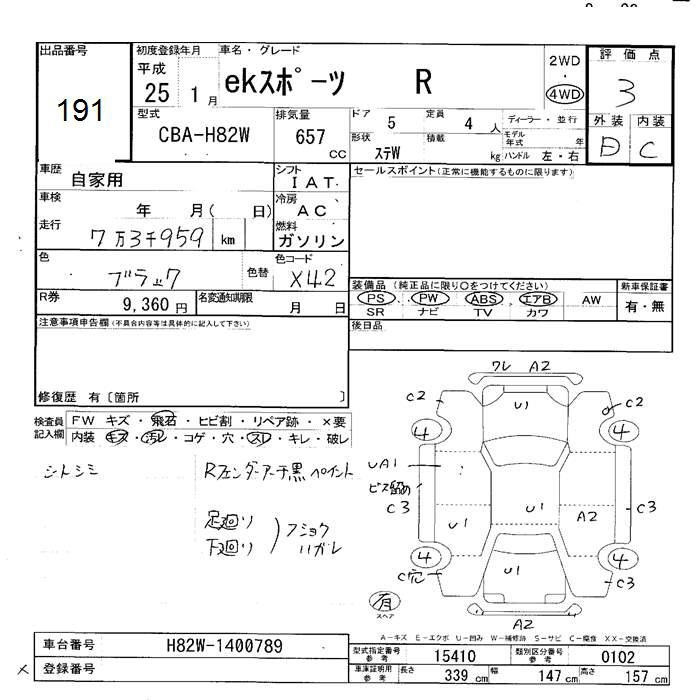 出品番号
191
初度登録年月
平成
25 1月
車名・グレード
ekスポーツ R
2WD
・
4WD
評価点
3
外装 内装
D C
型式
CBA-H82W
排気量
657 CC
ドア 5
定員 4人
形状 ステW
積載 kg
ディーラー・並行
モデル年式 年
ハンドル 左・右
車歴
自家用
シフト
IAT
セールスポイント(正常に機能するものに限ります)
車検
年 月( 日)
冷房
AC
走行
7万3千959 km
燃料
ガソリン
色
ブラック
色替
色コード
X42
装備品 (純正品に限り○をつけてください)
PS ・ PW ・ ABS ・ エアB ・ AW
SR ナビ TV カワ
新車保証書
有・無
R券
9,360円
名変通知期限
月 日
後日品
注意事項申告欄(不具合内容等は具体的に記入して下さい)
修復歴 有〔箇所 〕
検査員記入欄
FW キズ・飛石・ヒビ割・リペア跡・×要
内装 キズ・汚レ・コゲ・穴・スレ・キレ・破レ
シトシミ
Rフェンダーアーチ黒ペイント
足廻り
下廻り
フショウ
ハガレ
ワレ A2
C2
U1
C2
4
4
UA1
ビス留め
C3
U1
U1
A2
C3
4
4
C穴
U1
C3
有
スペア
A2
A-キズ E-エクボ U-凹み W-補修跡 S-サビ C-腐食 XX-交換済
車台番号
H82W-1400789
型式指定番号
参考
15410
類別区分番号
参考
0102
登録番号
車庫証明用
参考
長さ 339 cm
幅 147 cm
高さ 157 cm